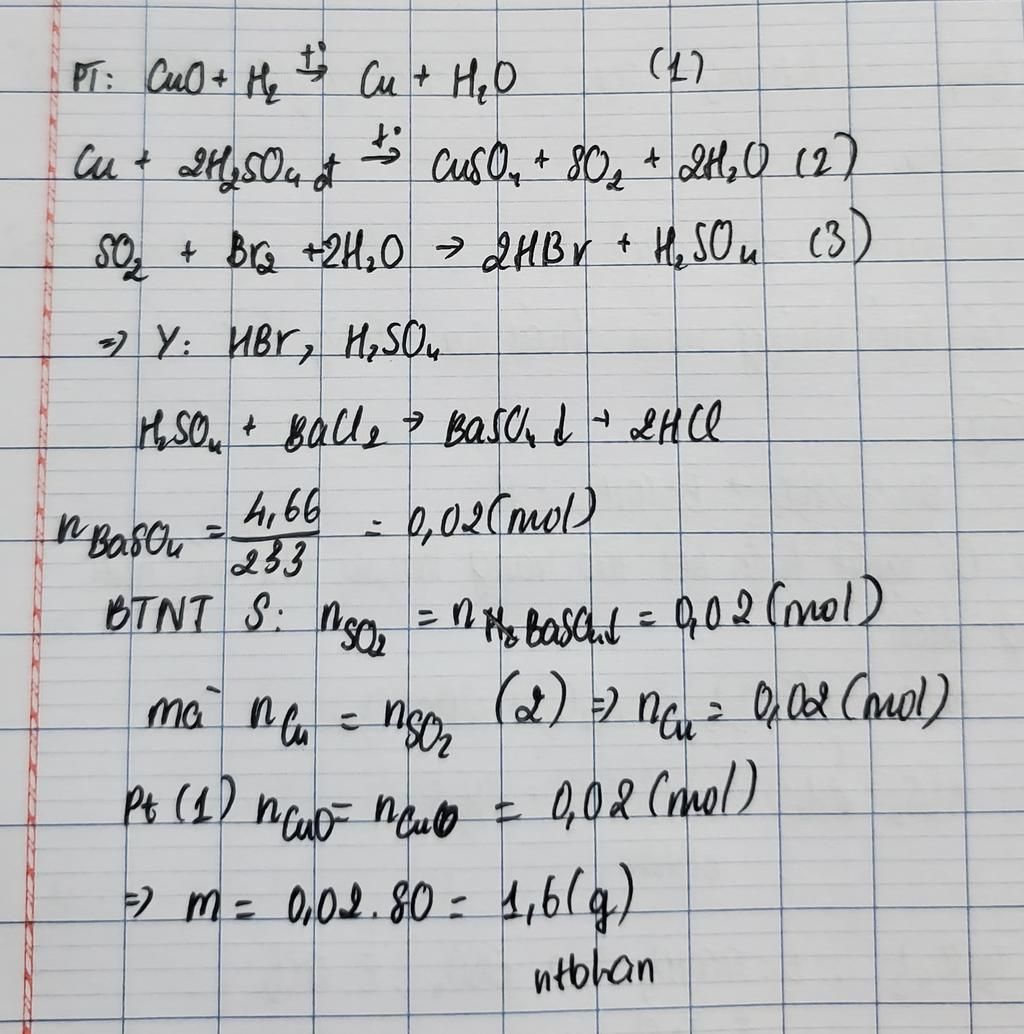 PT: CuO + H₂ t°→ Cu + H₂O (1)
Cu + 2H₂SO₄ đ t°→ CuSO₄ + SO₂ + 2H₂O (2)
SO₂ + Br₂ + 2H₂O → 2HBr + H₂SO₄ (3)
⇒ Y: HBr, H₂SO₄
H₂SO₄ + BaCl₂ → BaSO₄ ↓ + 2HCl
n BaSO₄ = 4,66 / 233 = 0,02 (mol)
BTNT S: n SO₂ = n BaSO₄↓ = 0,02 (mol)
mà n Cu = n SO₂ (2) ⇒ n Cu = 0,02 (mol)
Pt (1) n CuO = n Cu = 0,02 (mol)
⇒ m = 0,02.80 = 1,6 (g)
ntbhan